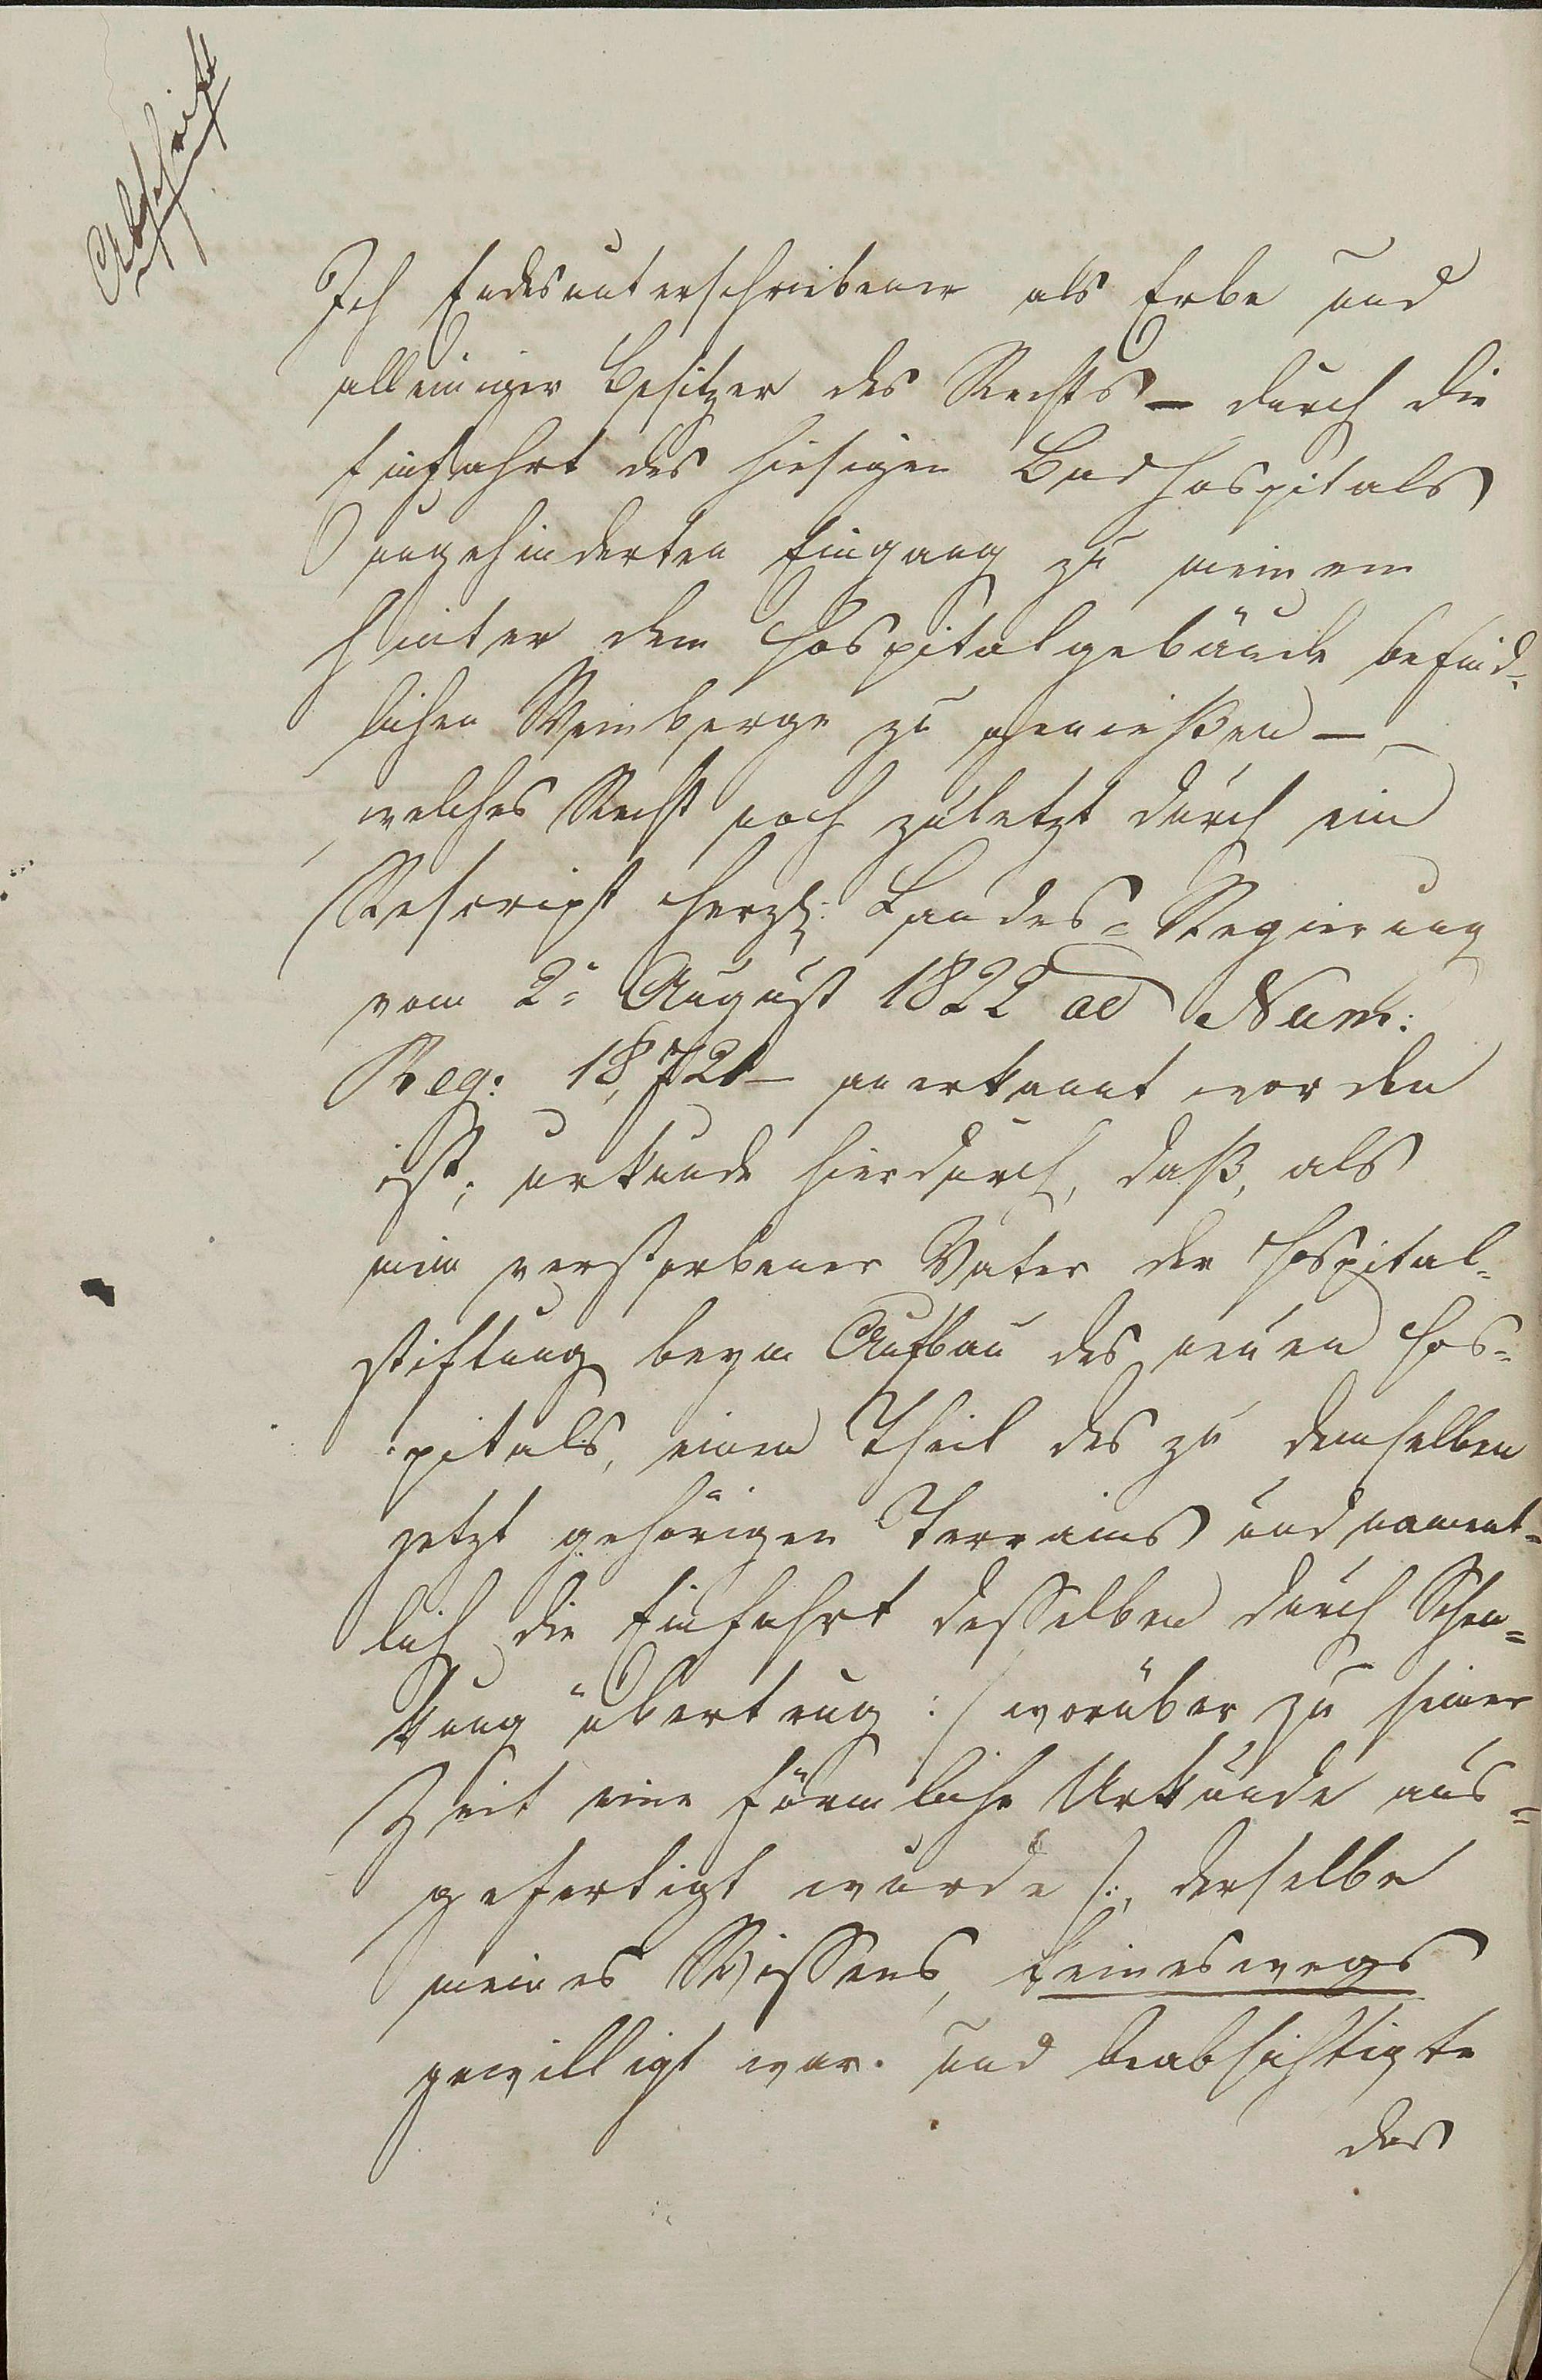 Abschrift
Ich Endesunterschriebener als Erbe und
alleiniger Besitzer des Rechts – durch die
Einfahrt des hiesigen Badhospitals
ungehinderten Eingang zu meinem
hinter dem Hospitalgebäude befind-
lichen Weinberge zu genießen –
welches Recht noch zuletzt durch ein
Rescript Herzl: Landes-Regierung
vom 2n August 1822 ad Num:
Reg: 18,721 – anerkannt worden
ist; urkunde hierdurch, daß, als
mein verstorbener Vater der Hospital-
stiftung beym Aufbau des neuen Hos-
pitals, einen Theil des zu demselben
jetzt gehörigen Terrains und nament-
lich die Einfahrt desselben durch Schen-
kung übertrug :/ worüber zu seiner
Zeit eine förmliche Urkunde aus-
gefertigt wurde /:, derselbe
meines Wissens, keineswegs
gewilligt war. und beabsichtigte
das